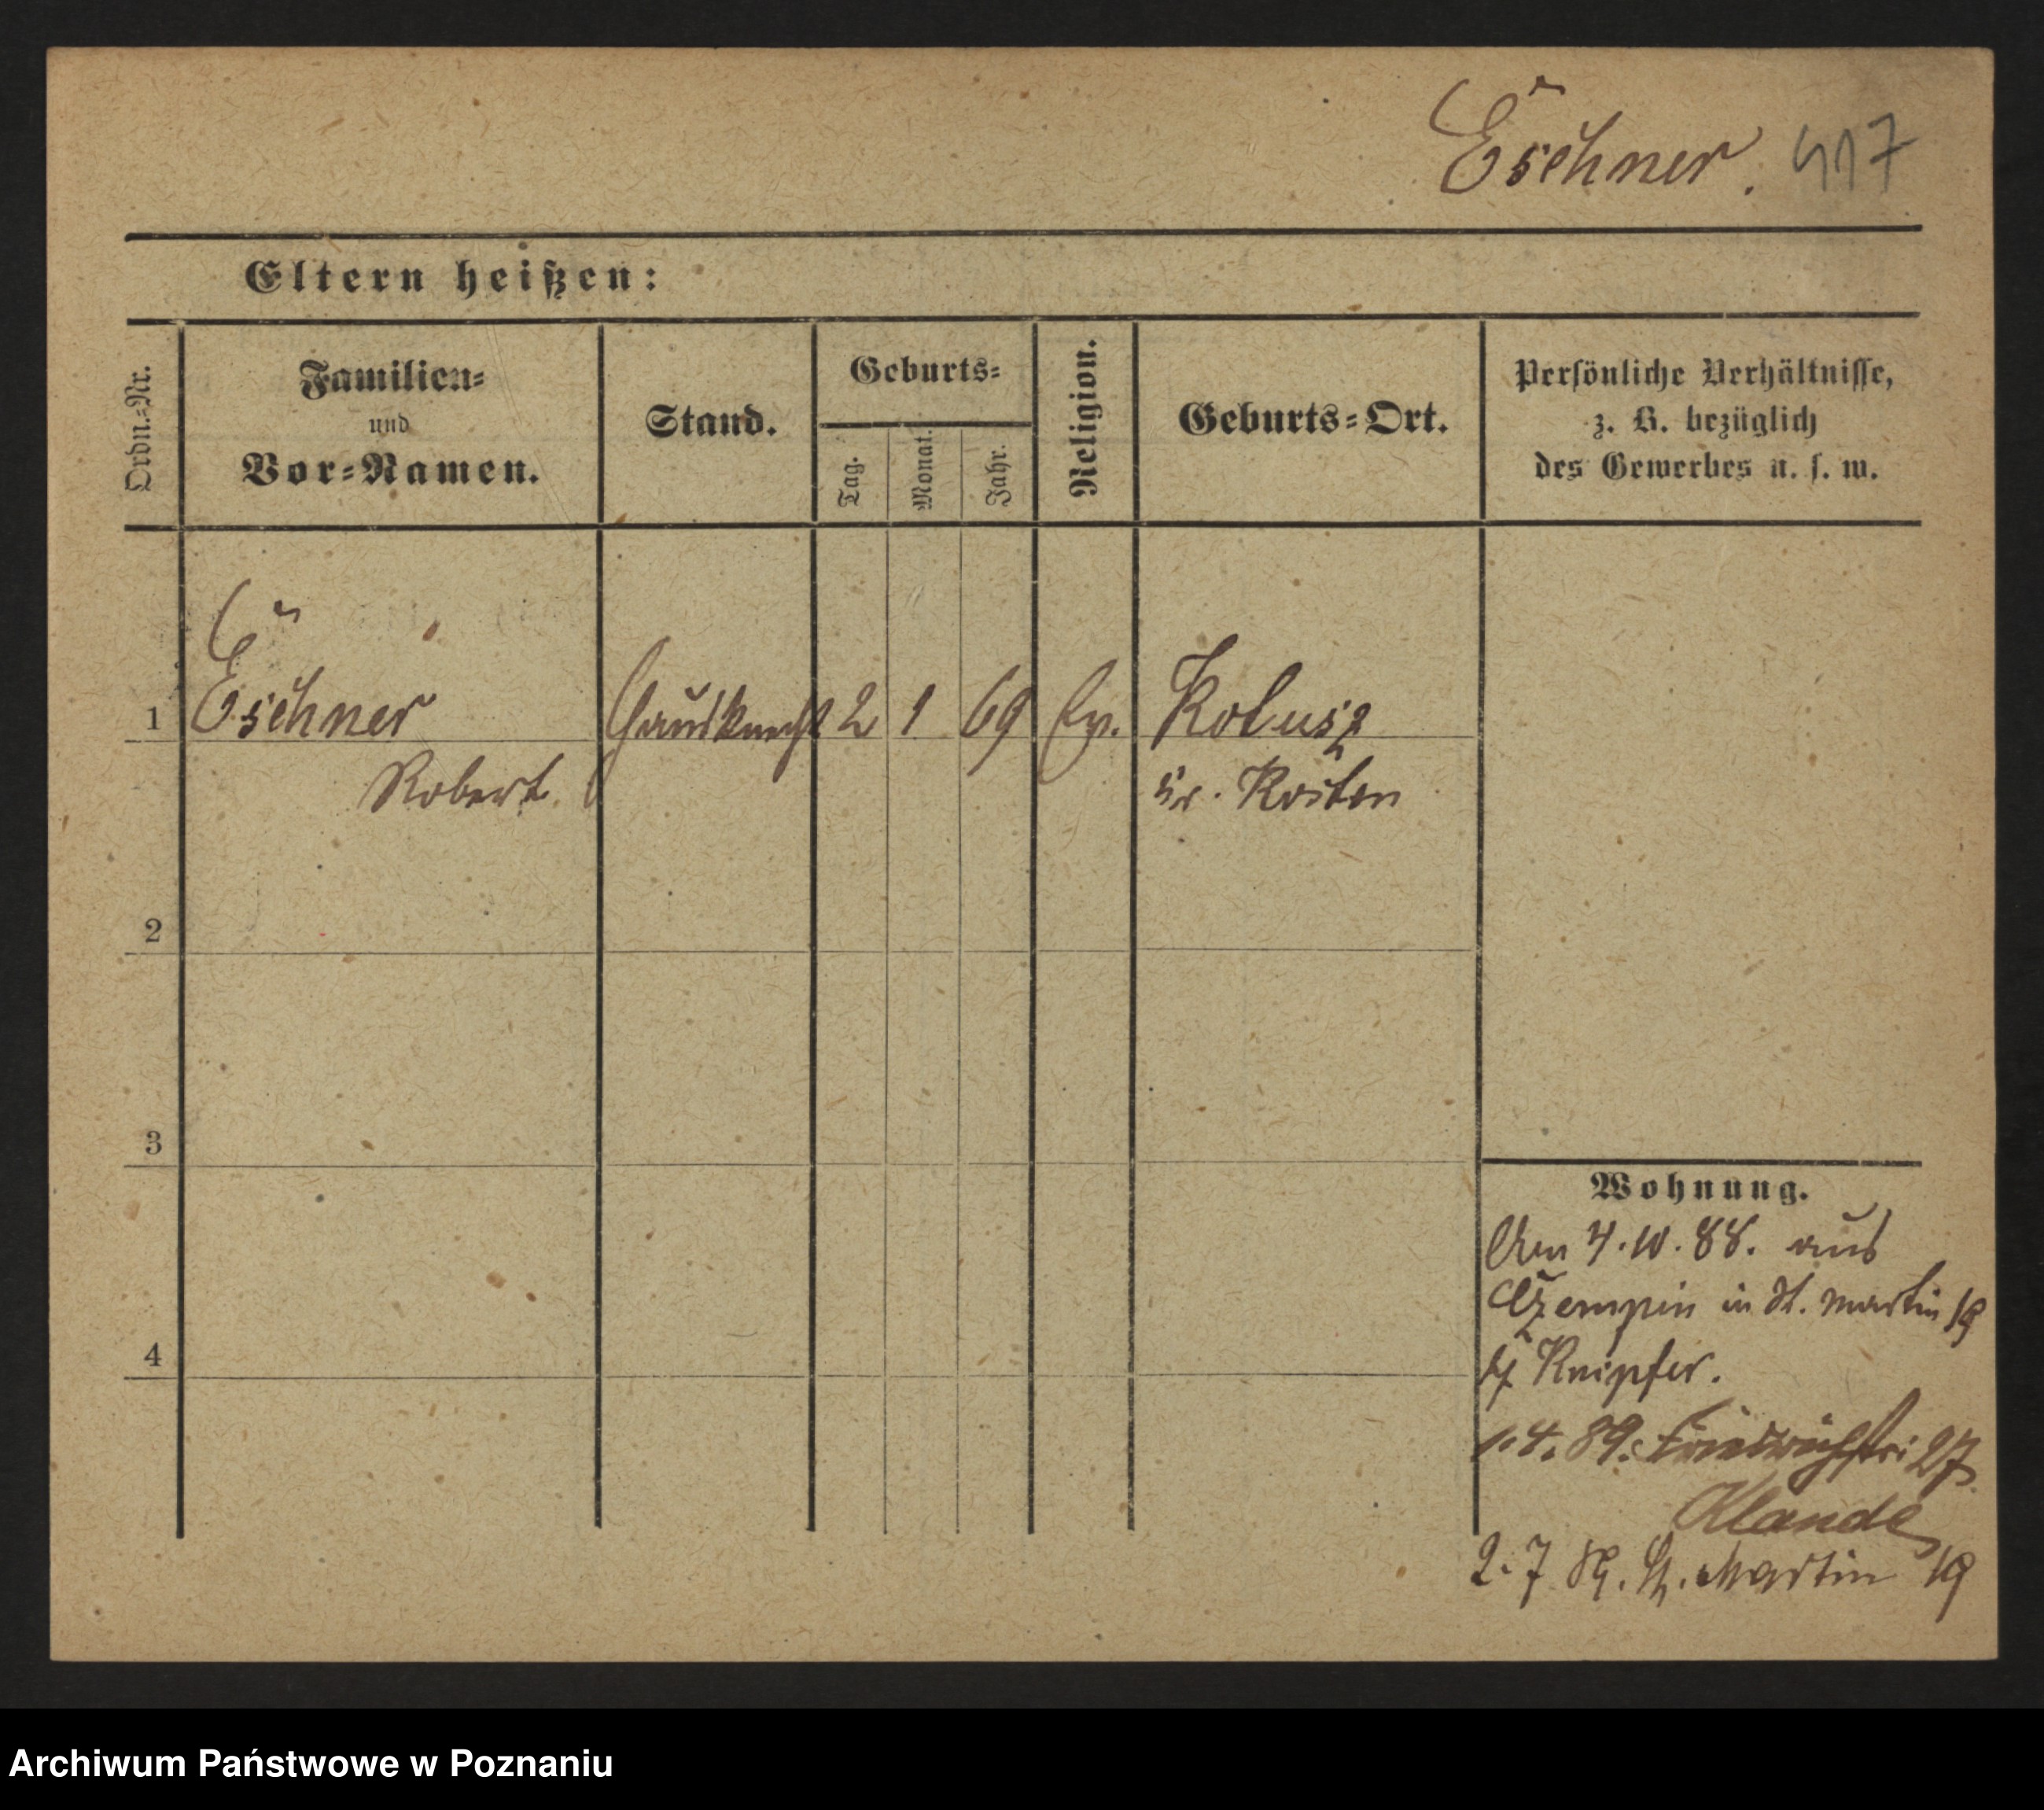 Eschner. 417
Eltern heißen:
Ordn.=Nr.
Familien=
und
Vor=Namen.
Stand.
Geburts=
Tag.
Monat.
Jahr.
Religion.
Geburts=Ort.
Persönliche Verhältnisse,
z. B. bezüglich
des Gewerbes u. s. w.
1 Eschner Hausknecht 2 1 69 Ev. Kolusz
Robert Kr. Kosten
2
3
4
Wohnung.
Am 4.10.88. aus
Czempin in St. Martin 19
Knipfer.
1.4.89. Friedrichstr. 27
Klande
2.7.89. St. Martin 19
Archiwum Państwowe w Poznaniu